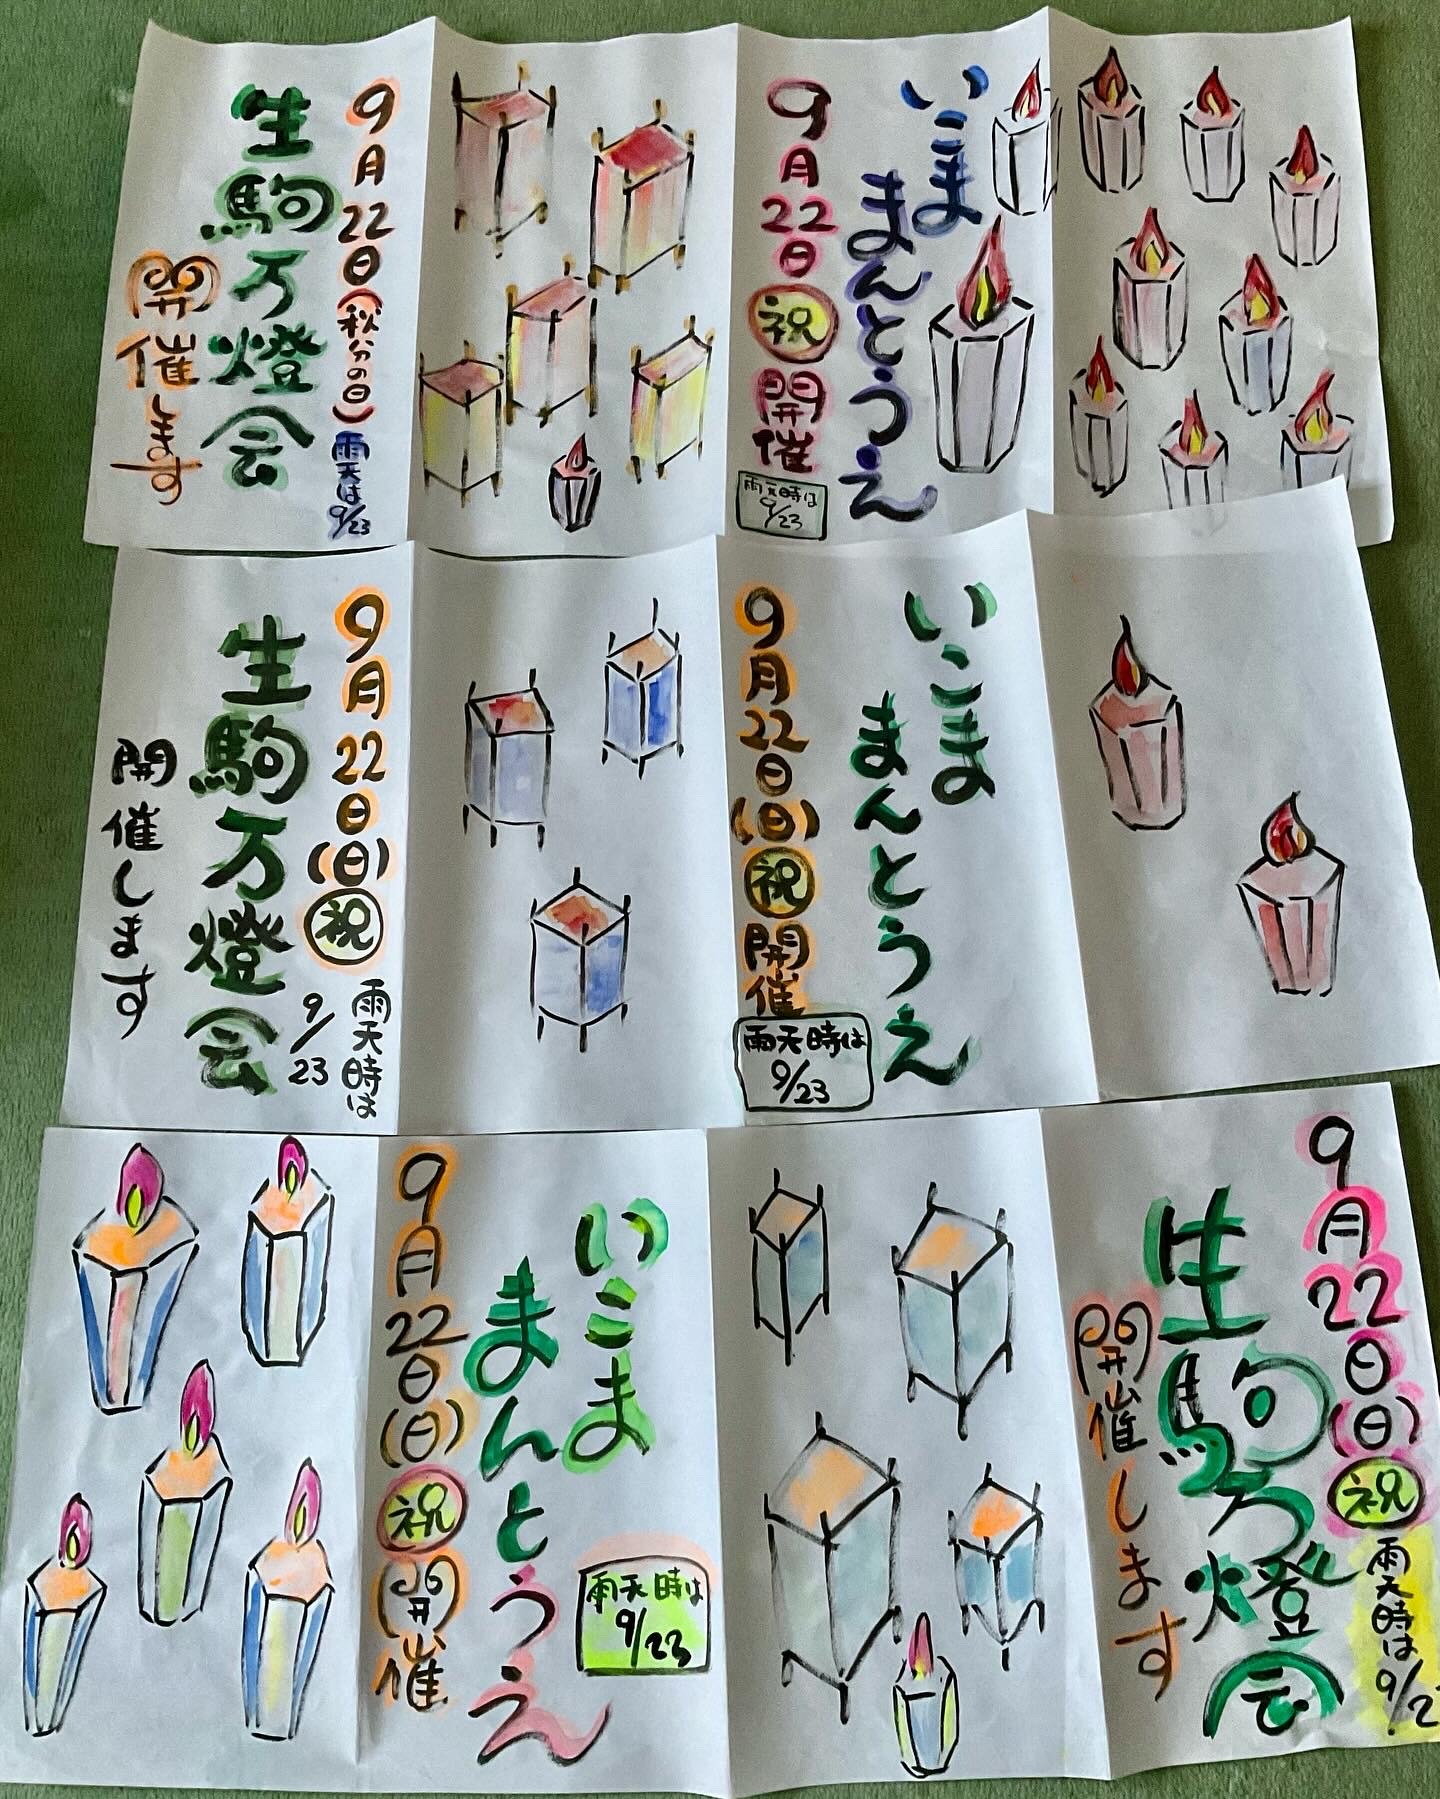 9月22日(秋分の日)
雨天は9/23
生駒万燈会
開催します
いこま
まんとうえ
9月22日
祝
開催
雨天時は
9/23
9月22日(日)
祝
雨天時は
9/23
生駒万燈会
開催します
いこま
まんとうえ
9月22日(日)
祝
開催
雨天時は
9/23
いこま
まんとうえ
9月22日(日)
祝
開催
雨天時は
9/23
9月22日(日)
祝
雨天時は
9/2
生駒万燈会
開催します